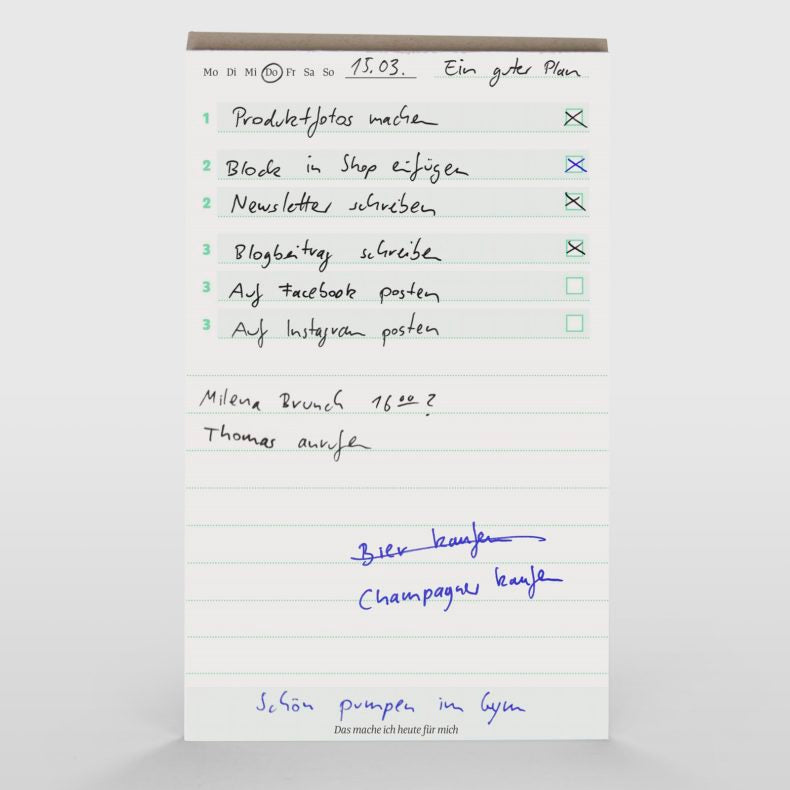 Mo Di Mi Do Fr Sa So 15.03. Ein guter Plan
1 Produktfotos machen
2 Block in Shop einfügen
2 Newsletter schreiben
3 Blogbeitrag schreiben
3 Auf Facebook posten
3 Auf Instagram posten
Milena Brunch 16⁰⁰?
Thomas anrufen
Bier kaufen
Champagner kaufen
Schön pumpen im Gym
Das mache ich heute für mich